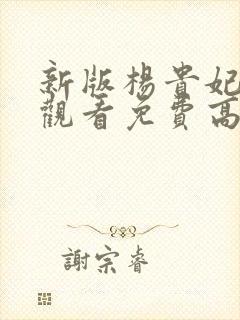 新版楊貴妃
觀看免費高
謝宗睿